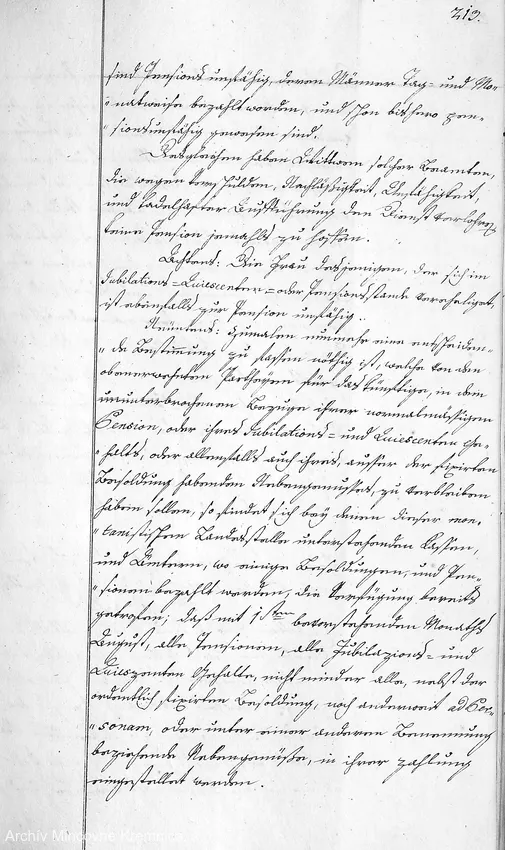 213.
sind Pensions unfähig, deren Männer Tag- und Mo-
"natweise bezahlt worden, und schon bishero pen-
"sionsunfähig gewesen sind.
Desgleichen haben Wittwen solcher Beamten,
die wegen Verschulden, Nachläßigkeit, Unfähigkeit,
und tadelhafter Aufführung den Dienst verlohren
keine Pension jemahls zu hoffen.
Achtens: Die Frau desjenigen, der sich im
Jubilations-Quiescenten- oder Pensionsstande verehelliget,
ist ebenfalls zur Pension unfähig.
Neuntens: Zumalen nunmehr eine entscheiden-
"de Bestimmung zu fassen nöthig ist, welche von den
obenerwehnten Partheyen für das künftige, in dem
ununterbrochenen Bezuge ihrer normalmässigen
Pension, oder ihres Jubilations- und Quiescenten Ge-
"halts, oder allenfalls auch ihres, ausser der fixirten
Besoldung habenden Nebengenusses, zu verbleiben
haben sollen, so findet sich bey denen dieser mon-
"tanistischen Landesstelle unterstehenden Kassen,
und Ämtern, wo einige Besoldungen, und Pen-
"sionen bezahlt werden, die Verfügung bereits
getrofen; daß mit 1sten bevorstehenden Monaths
August, alle Pensionen, alle Jubilazions- und
Quieszenten Gehalte, nicht minder alle, nebst der
ordentlich fixirten Besoldung, noch anderweit ad Per-
"sonam, oder unter einer anderen Benennung
beziehende Nebengenüße, in ihrer Zahlung
eingestellet werden.
Archiv Mincovne Kremnica